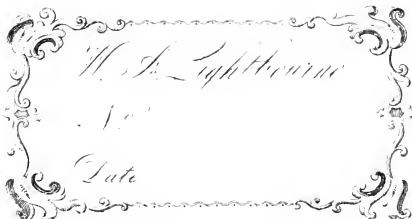 W. F. Lightbourne
No.
Date